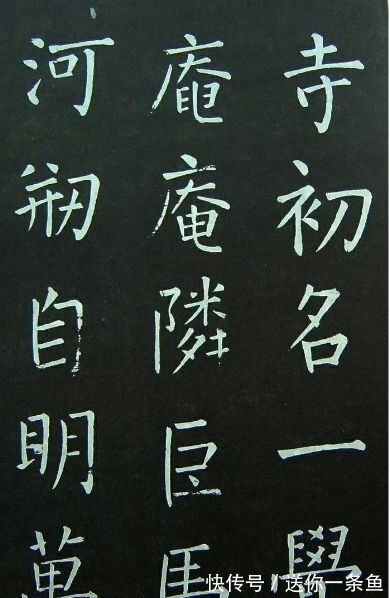 寺初名一學
庵庵隣巨馬
河剏自明萬
快传号/送你一条鱼